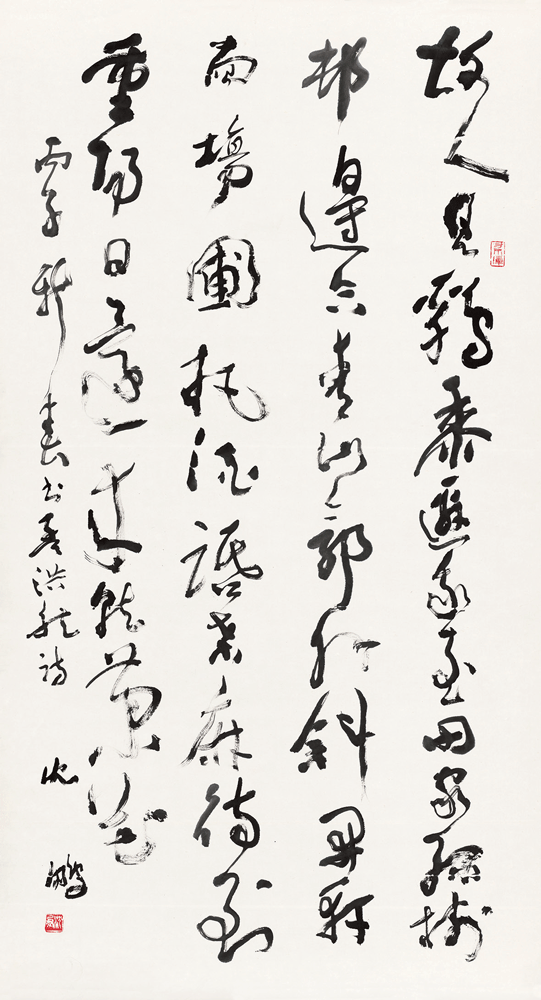 故人具鷄黍邀我至田家緑樹
邨邊合青山郭外斜開軒
面場圃把酒話桑麻待到
重陽日還來就菊花
丙子新春书孟浩然詩 沈鵬